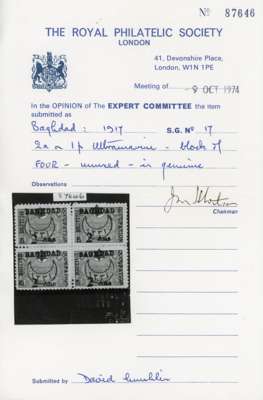 No 87646
THE ROYAL PHILATELIC SOCIETY
LONDON
41, Devonshire Place,
London, W1N 1PE
Meeting of - 9 OCT 1974
In the OPINION of The EXPERT COMMITTEE the item
submitted as
Baghdad : 1917 S.G. No 17
2a on 1p Ultramarine - block of
FOUR - unused - is genuine
Observations
Chairman
87646
BAGHDAD BAGHDAD
BAGHDAD BAGHDAD
Submitted by David